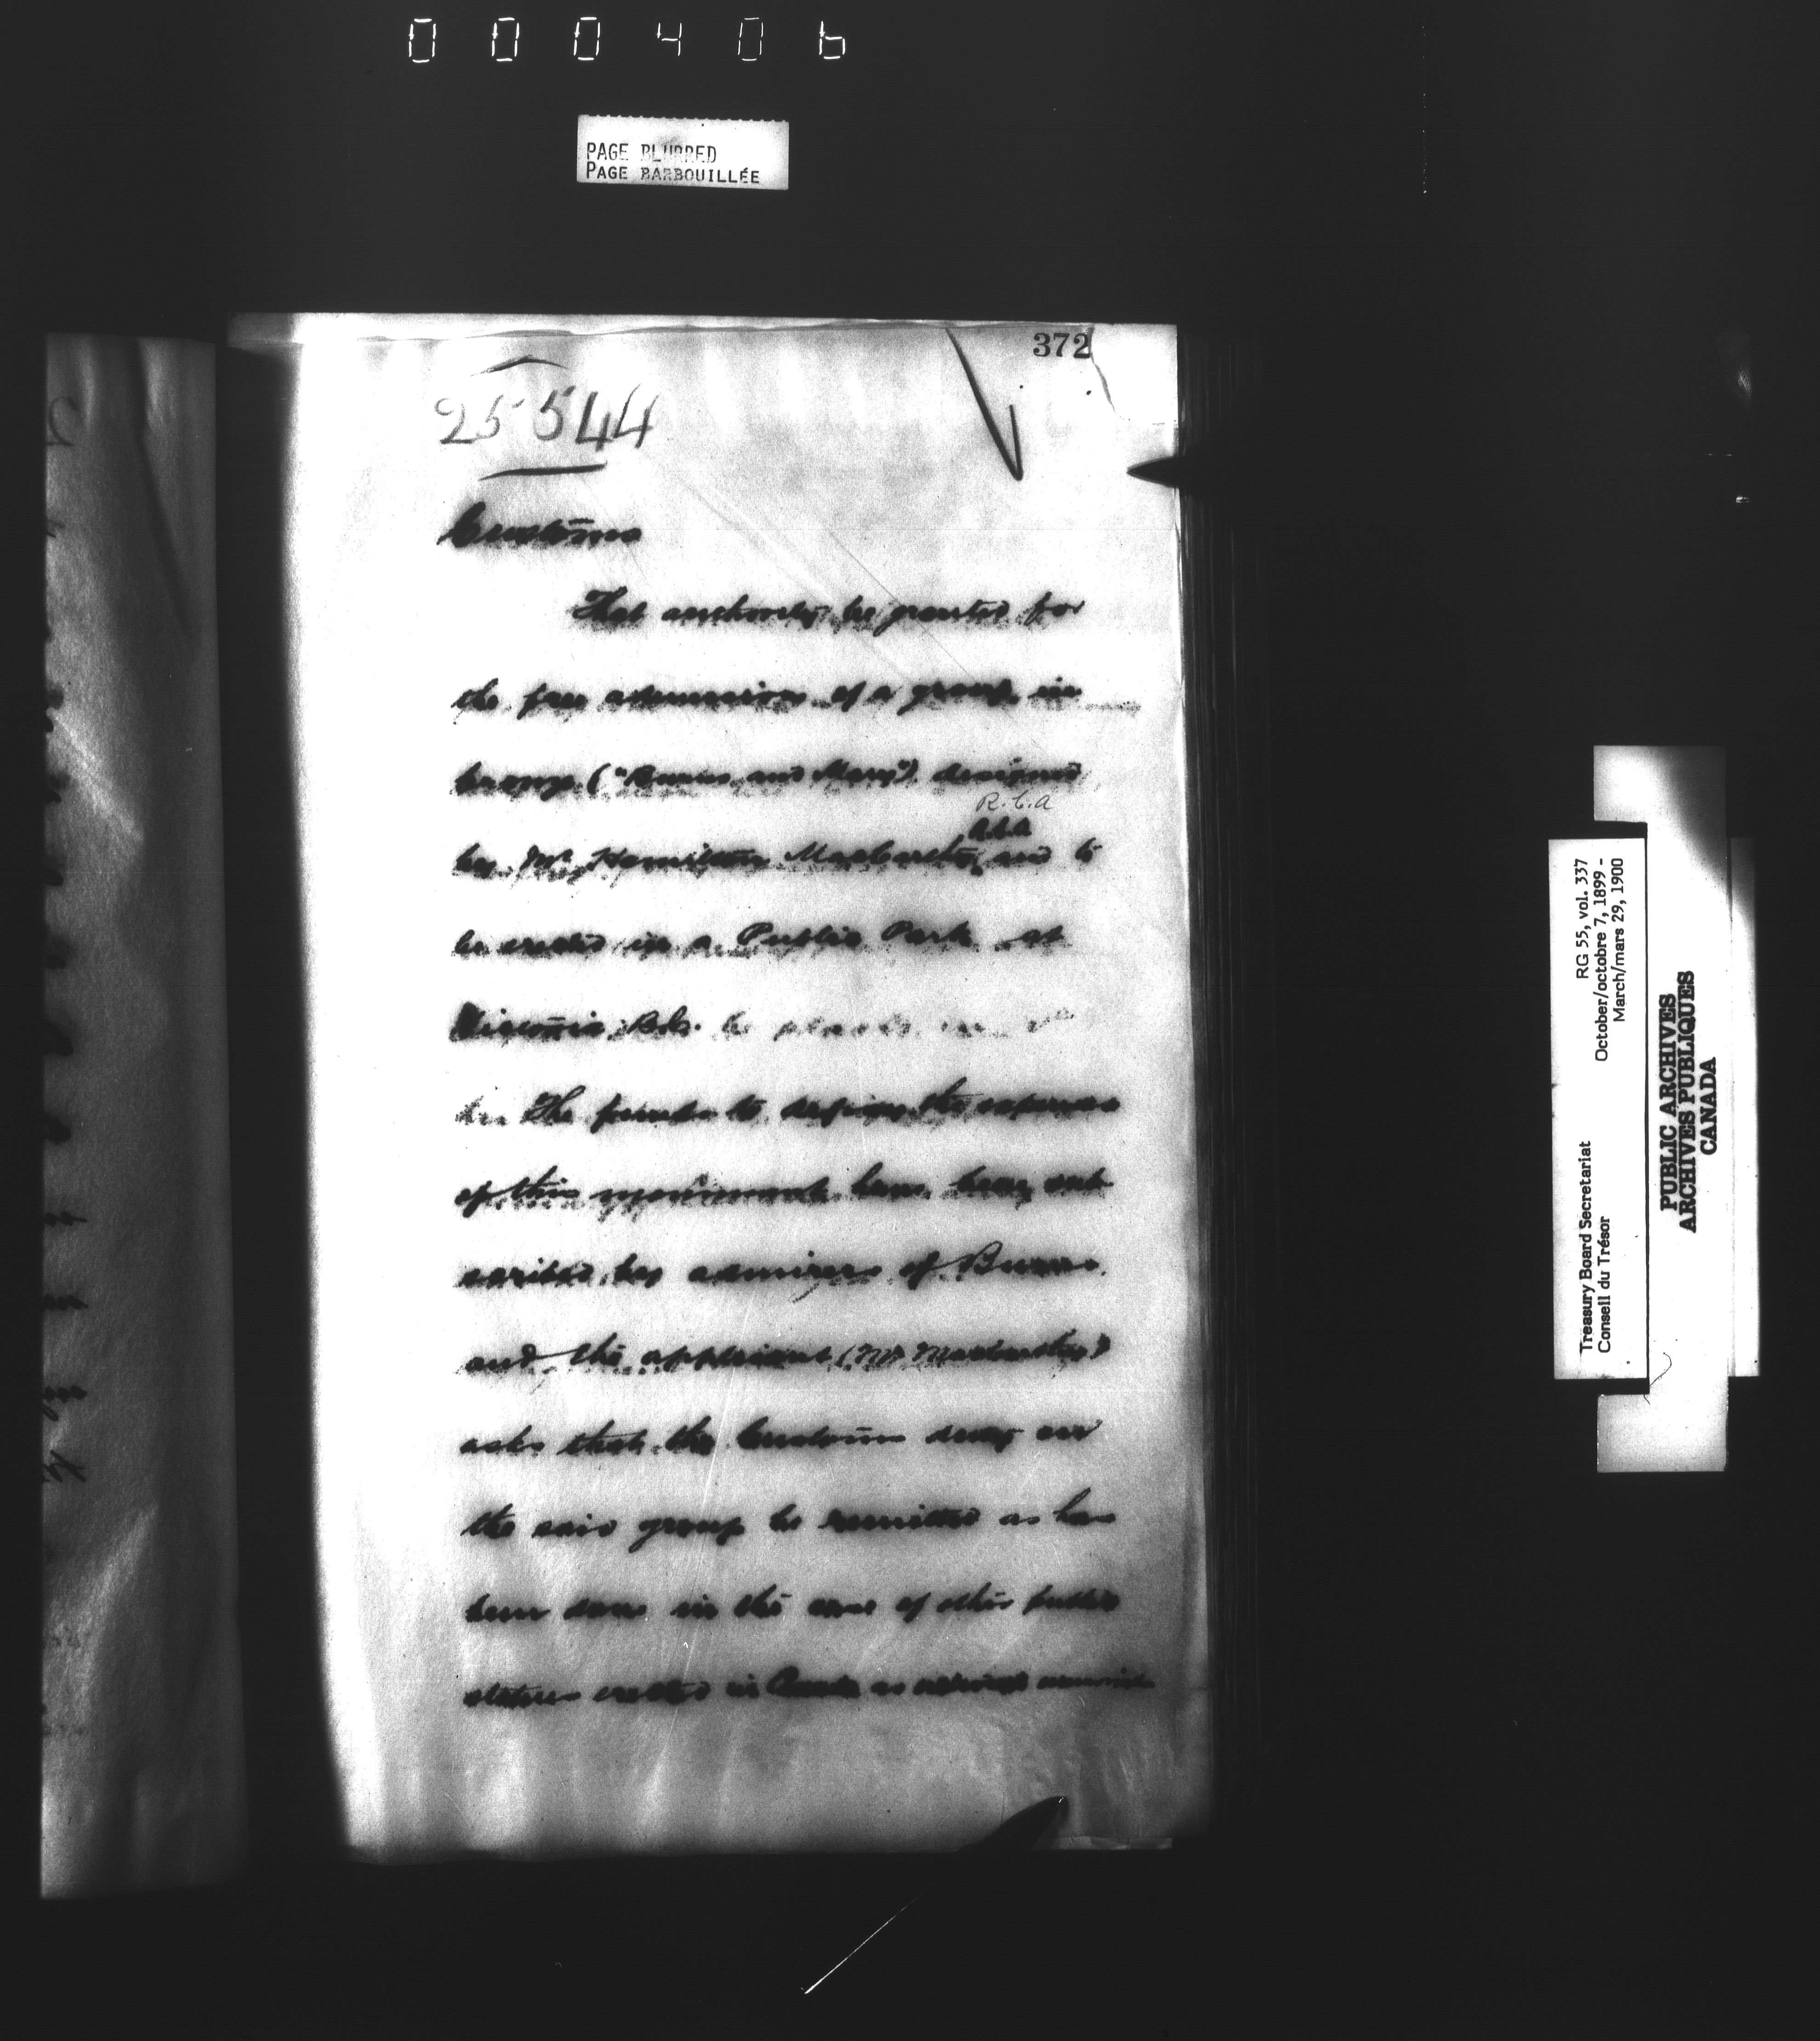 000406
PAGE BLURRED
PAGE BARBOUILLÉE
372
25544
Customs
That authority be granted for
the free admission of a group in
bronze ("Burns and Mary") designed
R.C.A
by Mr Hamilton MacCarthy and to
be erected in a Public Park at
Victoria B.C.
The funds to defray the expense
of this monument have been sub
scribed by admirers of Burns
and the applicant (Mr MacCarthy)
asks that the Customs duty on
the said group be remitted as has
been done in the case of other public
statues erected in Canada as
RG 55, vol. 337
October/octobre 7, 1899 -
March/mars 29, 1900
Treasury Board Secretariat
Conseil du Trésor
PUBLIC ARCHIVES
ARCHIVES PUBLIQUES
CANADA